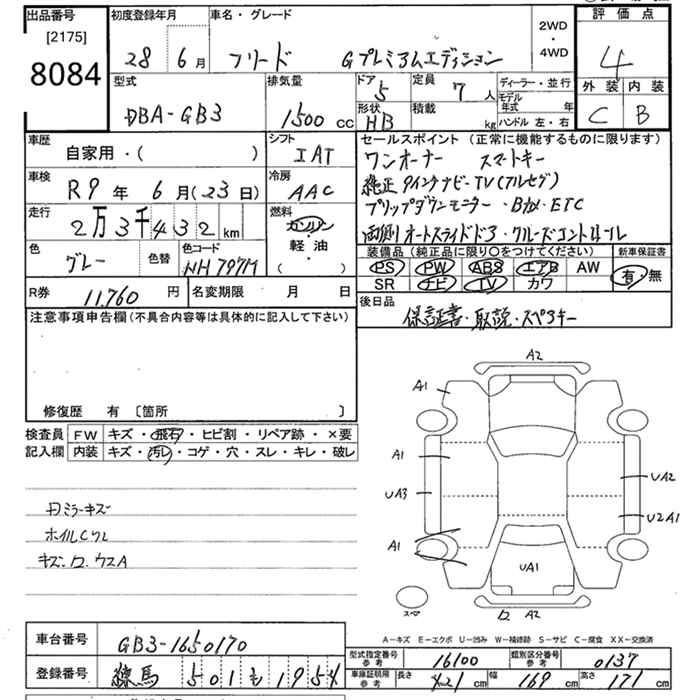 出品番号 初度登録年月 車名・グレード 2WD・4WD 評価点
[2175]
8084
28年 6月 フリード Gプレミアムエディション 4
型式 排気量 ドア 定員 ディーラー・並行 外装 内装
DBA-GB3 1500 cc 5 7人 モデル年式 年 C B
形状 積載 ハンドル 左・右
HB kg
車歴 シフト セールスポイント(正常に機能するものに限ります)
自家用・( ) IAT ワンオーナー スマートキー
車検 冷房 純正 9インチナビ・TV(フルセグ)
R9年 6月(23日) AAC フリップダウンモニター・Bカメ・ETC
走行 燃料 両側オートスライドドア・クルーズコントロール
2万3千432km ガソリン
軽油
( )
色 色替 色コード 装備品(純正品に限り○をつけてください) 新車保証書
グレー NH797M PS PW ABS エアB AW 有・無
SR ナビ TV カワ
R券 11,760円 名変期限 月 日 後日品
注意事項申告欄(不具合内容等は具体的に記入して下さい) 保証書・取説・スペアキー
修復歴 有 〔箇所 〕
検査員 FW キズ・飛石・ヒビ割・リペア跡・×要
記入欄 内装 キズ・汚レ・コゲ・穴・スレ・キレ・破レ
ミラーキズ
ホイルC
キズ
A2
A1
A1
UA3
A1
UA2
U2A1
UA1
A2
スペア
A-キズ E-エクボ U-凹み W-補修跡 S-サビ C-腐食 XX-交換済
車台番号 GB3-1650170
型式指定番号 参考 16100 類別区分番号 参考 0137
登録番号 練馬 501 も 1954
車庫証明用 参考 長さ 421cm 幅 169cm 高さ 171cm